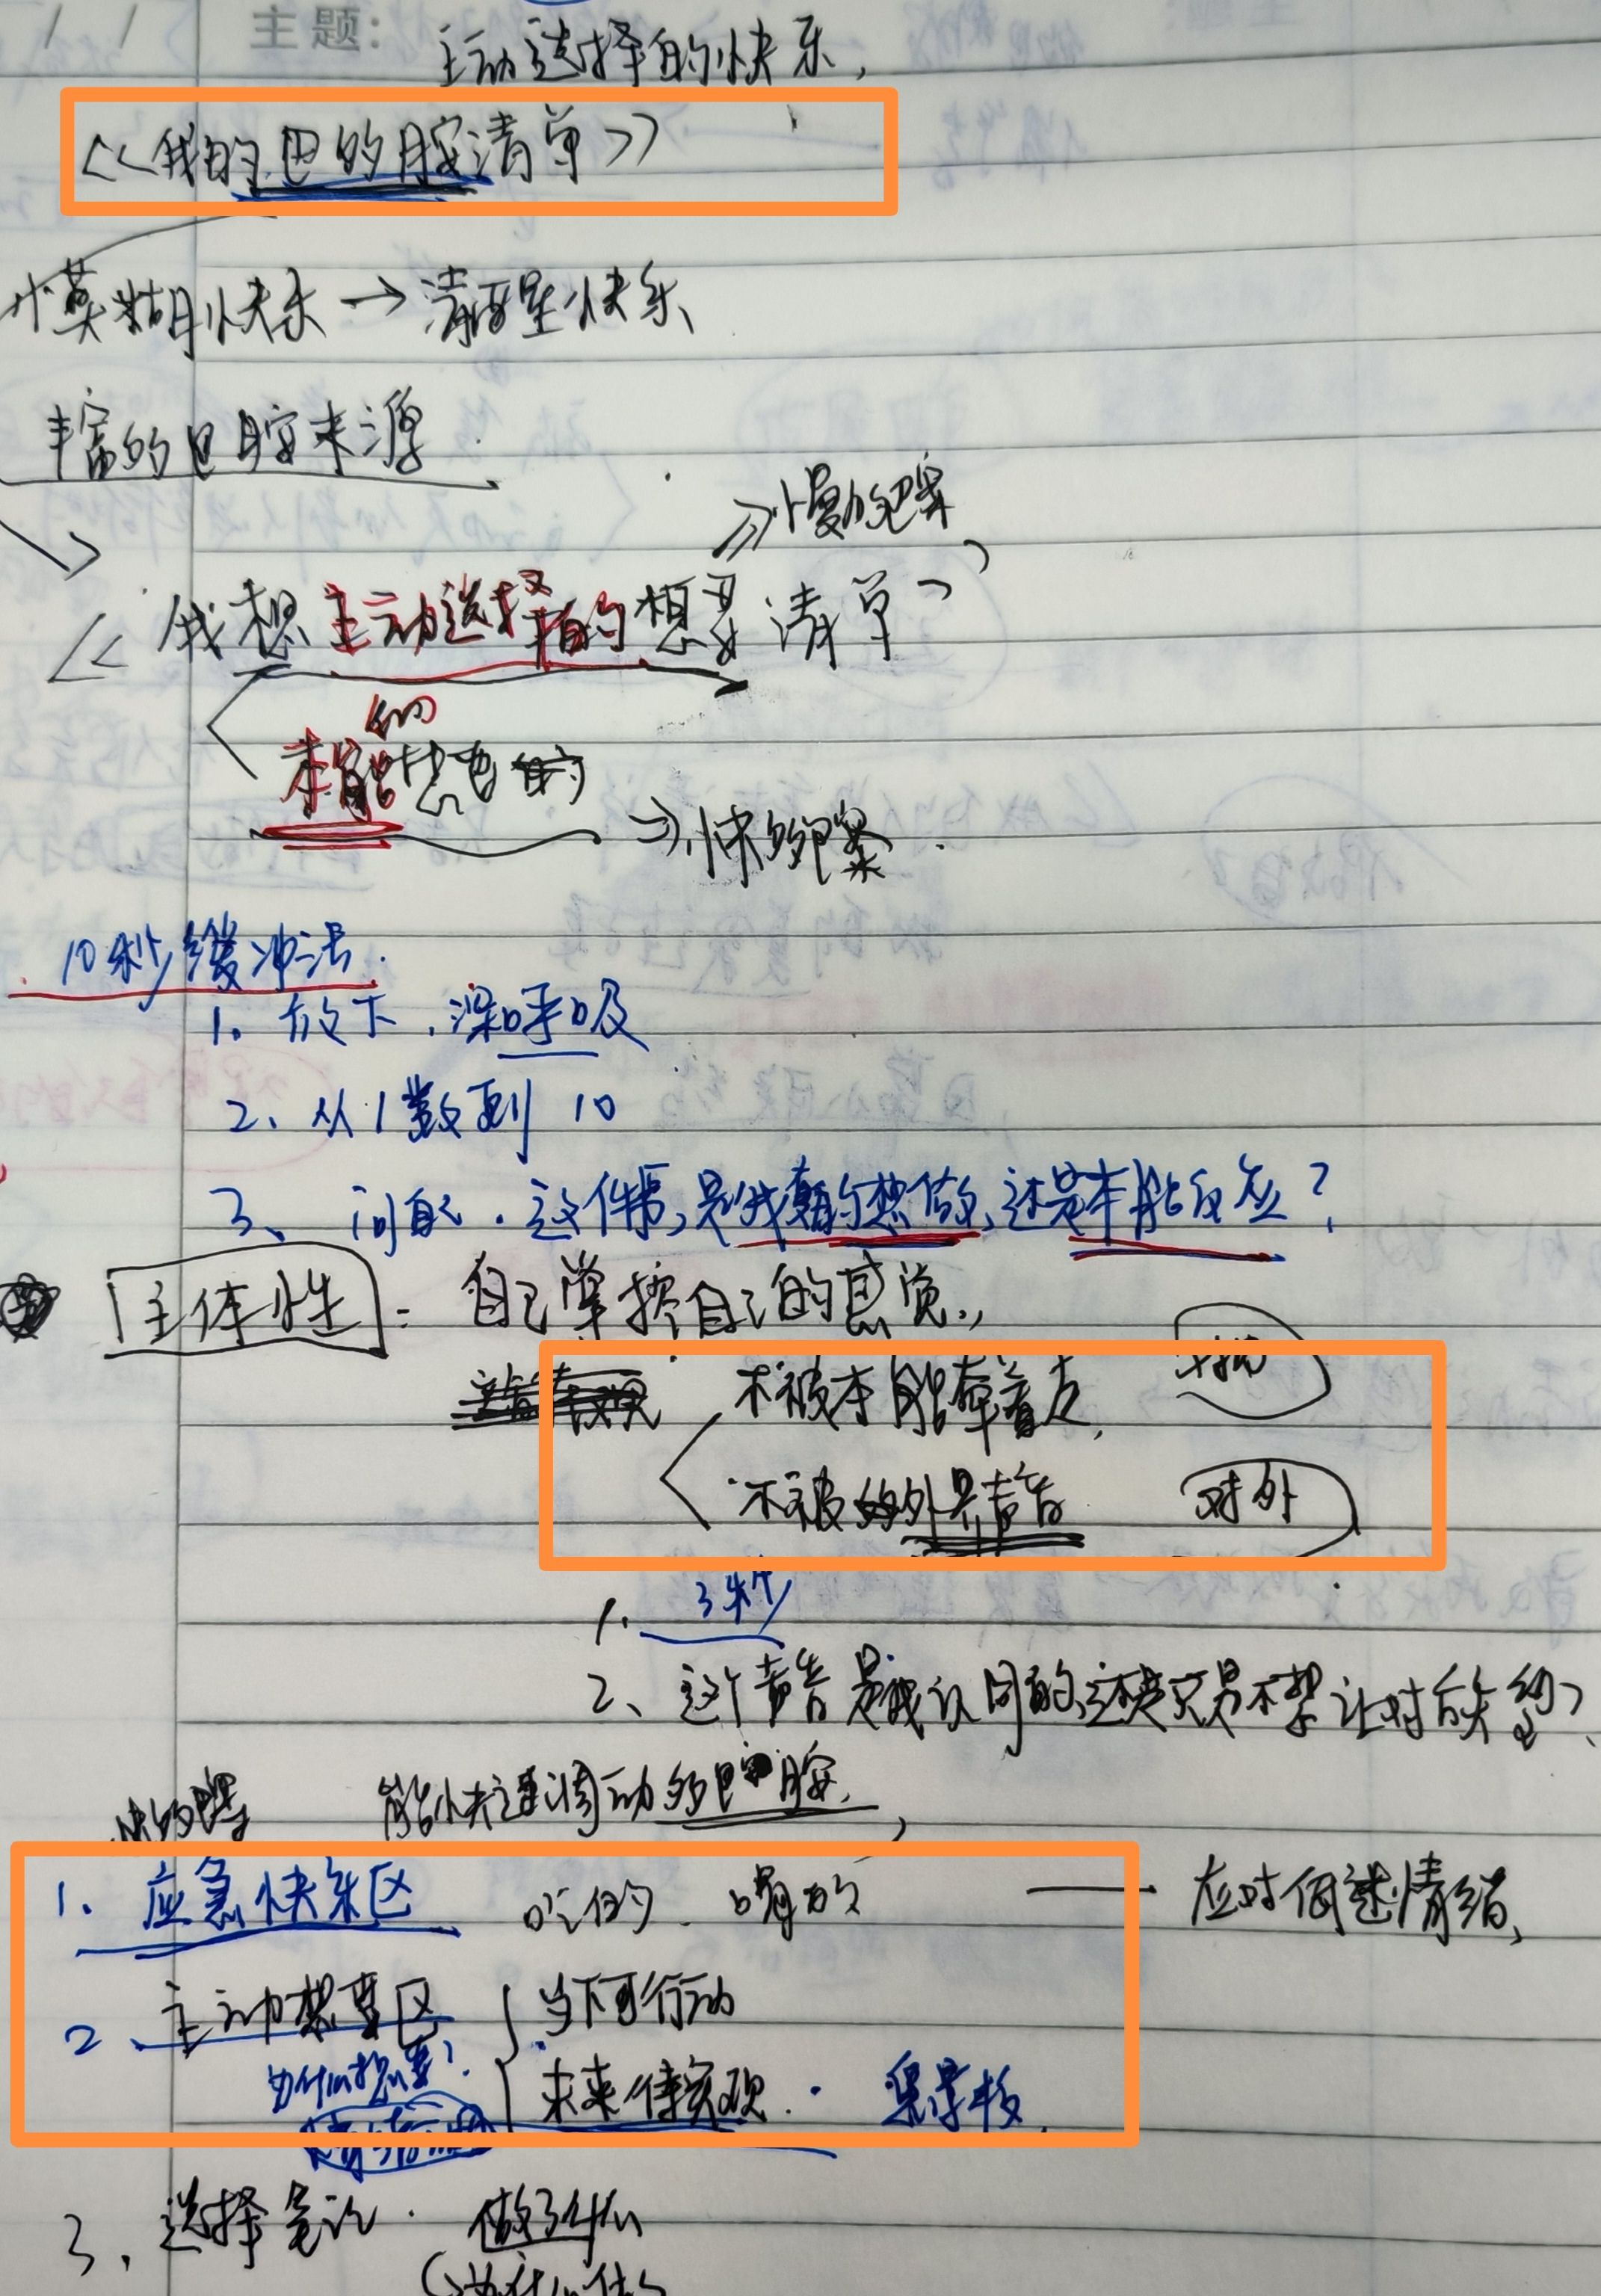 主题:
主动选择的快乐,
<<我的巴的胺清单>>
模糊快乐→清醒快乐
丰富的巴胺来源.
⇒慢多巴案
<<我想主动选择的想要清单>>
的
本能想要
⇒快多巴案.
10秒缓冲法.
1. 放下,深呼吸
2、从1数到10
3、问自己.这件事,是我真的想做,还是本能反应?
主体性:自己掌控自己的感觉.,
不被本能牵着走,
不被外界声音 对外
1. 3秒
2、这个声音是我认同的,还是只是不想让对方失望?
能快速调动多巴胺,
1. 应急快乐区 吃的、喝的 —— 应对低迷情绪,
2、主动想要区 { 当下可行动
为什么想要? 未来待实现.
3、选择笔记. 做了什么
为什么做